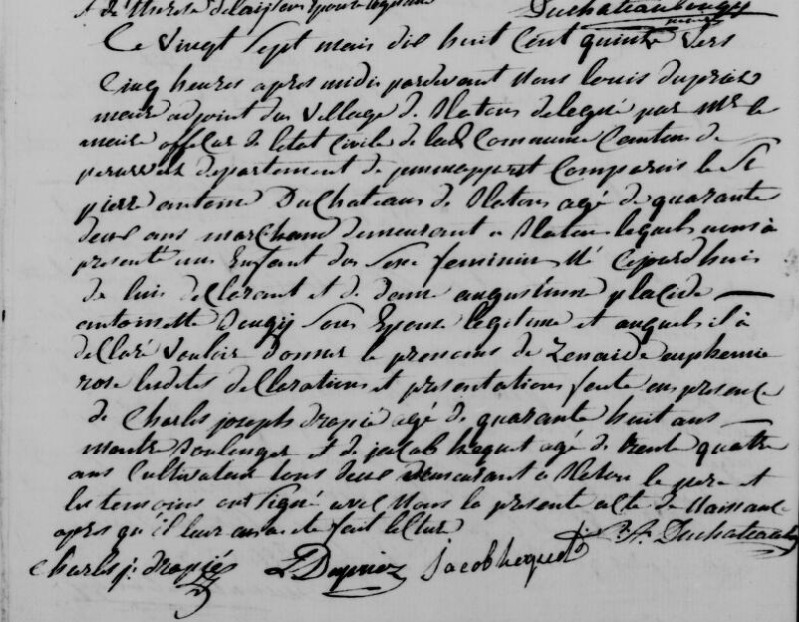 et de
Duchateau Bougy
Ce vingt Sept mars dix huit Cent quinze vers
Cinq heures apres midi pardevant Nous louis Dupriez
maire adjoint du Village de Blaton delegué par Mr le
maire officier de letat Civile de lad Commune Canton de
departement de jemmappes est Comparus le Sr
pierre antoine DuChateau de Blaton agé de quarante
deux ans marchand demeurant a Blaton lequel nous à
presenté une Enfant du Sexe feminin Né Cejourdhuis
de luis declarant et de dame augustinne placide
antoinette Bougÿ Sons Epouse legitime et auquel il à
declaré vouloir donner le prenoms de Zenaide euphemie
rose lesdites declarations et presentations faite en presence
de Charles joseph drapié agé de quarante huit ans
maitre boulenger et de jacob hequet agé de trente quattre
ans Cultivateur tous deux demeurant a Blaton le pere et
les temoins ont signé avec Nous le presente acte de Naissance
apres qu'il leur en a eté fait lecture
P. A. Duchateau
Charles j. drapiés L Dupriez jacob hequet